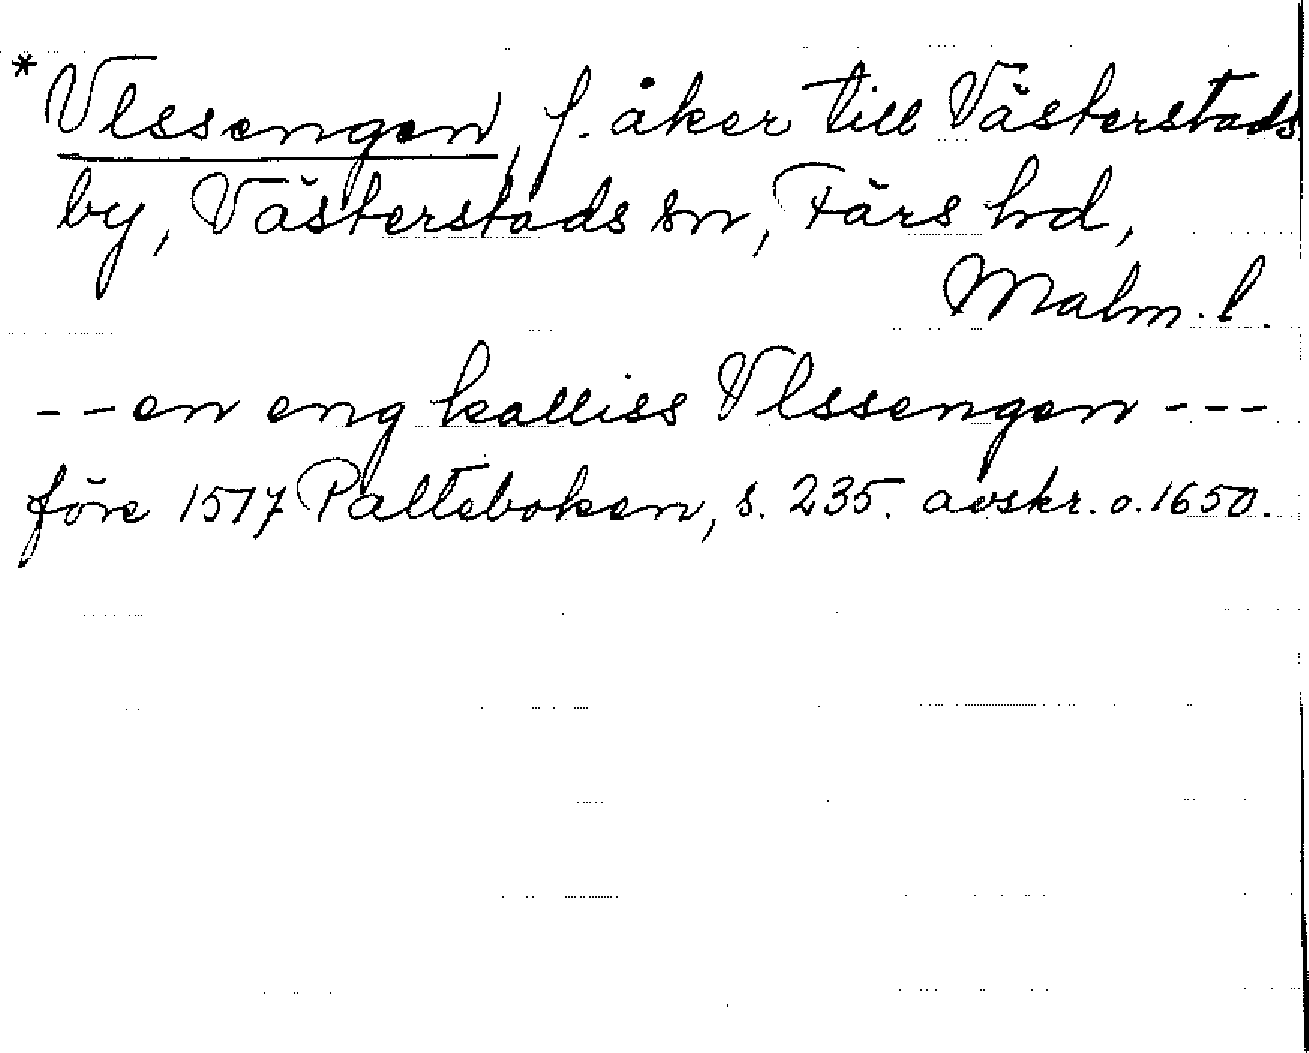 * Vlssengen, f. åker till Västerstads
by, Västerstads sn, Färs hd,
Malm. l.
-- en eng kalliss Vlssengen ---
före 1517 Palteboken, s. 235. avskr. o. 1650.